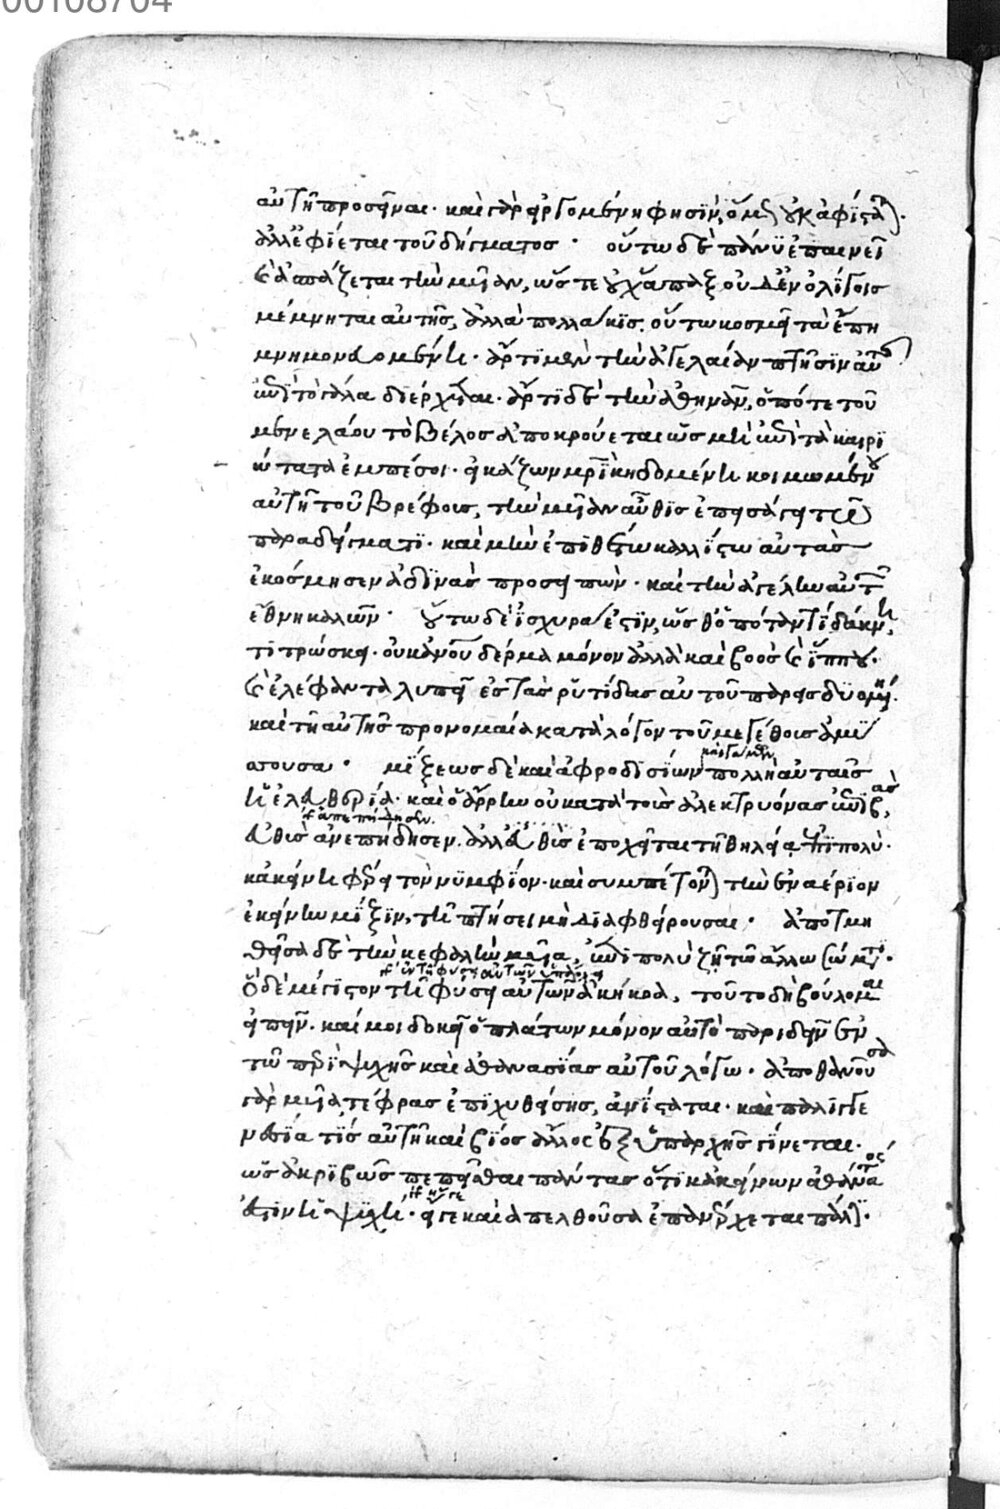 00108704
αὐτῇ προσεῖναι. καὶ γὰρ εἰργομένη φησὶν, ὅμως οὐκ ἀφίσταται.
ἀλλ' ἐφίεται τοῦ δήγματος. οὕτω δὲ πάνυ ἐπαινεῖ
καὶ ἀσπάζεται τὴν μυῖαν, ὥστε οὐχ ἅπαξ οὐδ' ἐν ὀλίγοις
μέμνηται αὐτῆς, ἀλλὰ πολλάκις. οὕτω κοσμεῖ τὰ ἔπη
μνημονευομένη. ἄρτι μὲν τὴν ἀγελαίαν πτῆσιν αὐτῶν
ἐπὶ τὸ γάλα διέρχεται. ἄρτι δὲ τὴν ἀθηνᾶν, ὁπότε τοῦ
μενελάου τὸ βέλος ἀποκρούεται ὡς μὴ ἐπὶ τὰ καιρι
ώτατα ἐμπέσοι. εἰκάζων μητρὶ κηδομένη κοιμωμένου
αὐτῇ τοῦ βρέφους, τὴν μυῖαν αὖθις ἐπεισάγει τῷ
παραδείγματι. καὶ μὴν ἐπιθέτῳ καλλίστῳ αὐτὰς
ἐκόσμησεν ἀδινὰς προσειπὼν. καὶ τὴν ἀγέλην αὐτῶν
ἔθνη καλῶν. οὕτω δὲ ἰσχυρά ἐστιν, ὥσθ' ὁπόταν τι δάκνῃ
τιτρώσκει. οὐκ ἀνθρώπου δέρμα μόνον ἀλλὰ καὶ βοὸς καὶ ἵππου.
καὶ ἐλέφαντα λυπεῖ ἐς τὰς ῥυτίδας αὐτοῦ παρεισδυομένη.
καὶ τῇ αὐτῆς προνομαίᾳ κατὰ λόγον τοῦ μεγέθους ἀμύ
σουσα. μίξεως δὲ καὶ ἀφροδισίων πολλὴ αὐταῖς
ἡ ἐλευθερία. καὶ ὁ ἄρρην οὐ κατὰ τοὺς ἀλεκτρυόνας ἐπιβὰς,
εὐθὺς ἀνεπήδησεν. ἀλλ' εὐθὺς ἐποχεῖται τῇ θηλείᾳ ἐπὶ πολύ.
κἀκείνη φέρει τὸν νυμφίον. καὶ συμπέτονται τὴν ἐναέριον
ἐκείνην μίξιν, τῇ πτήσει μὴ διαφθείρουσαι. ἀποτμη
θεῖσα δὲ τὴν κεφαλὴν μυῖα, ἐπὶ πολὺ ζῇ τῷ ἄλλῳ σώματι.
ὃ δὲ μέγιστον τῇ φύσει αὐτῶν ἀκήκοα, τοῦτο δὴ βούλομαι
εἰπεῖν. καί μοι δοκεῖ ὁ πλάτων μόνον αὐτὸ παριδεῖν ἐν
τῷ περὶ ψυχῆς καὶ ἀθανασίας αὐτοῦ λόγῳ. ἀποθανοῦσα
γὰρ μυῖα τέφρας ἐπιχυθείσης, ἀνίσταται. καὶ παλιγγε
νεσία τις αὐτῇ καὶ βίος ἄλλος ἐξ ὑπαρχῆς γίνεται.
ὡς ἀκριβῶς πεπεῖσθαι πάντας ὅτι κἀκείνων ἀθάνατος
ἐστιν ἡ ψυχή. εἴγε καὶ ἀπελθοῦσα ἐπανέρχεται πάλιν.